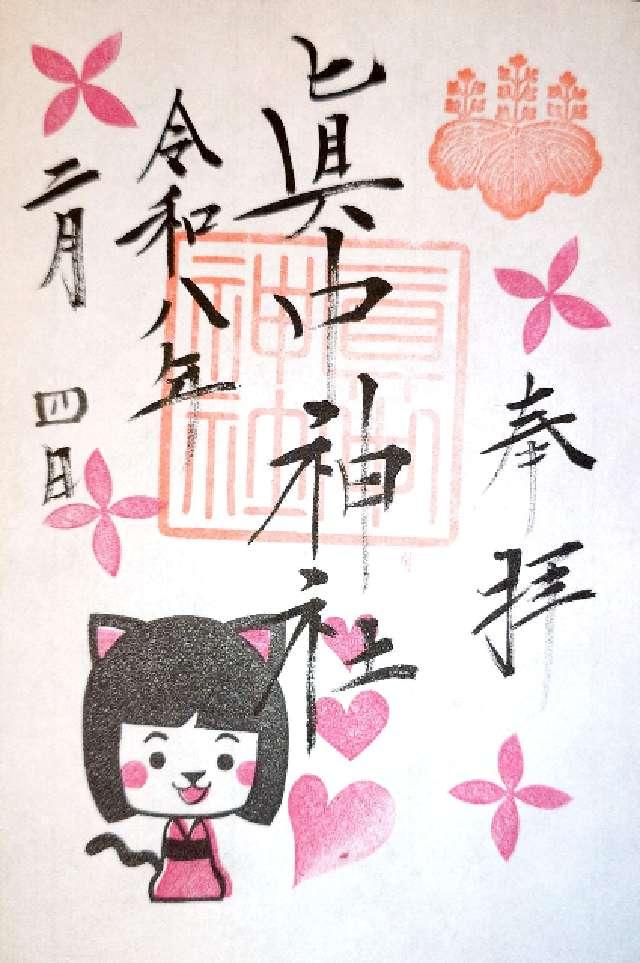 奉拝
眞中神社
令和八年
二月四日
眞中神社